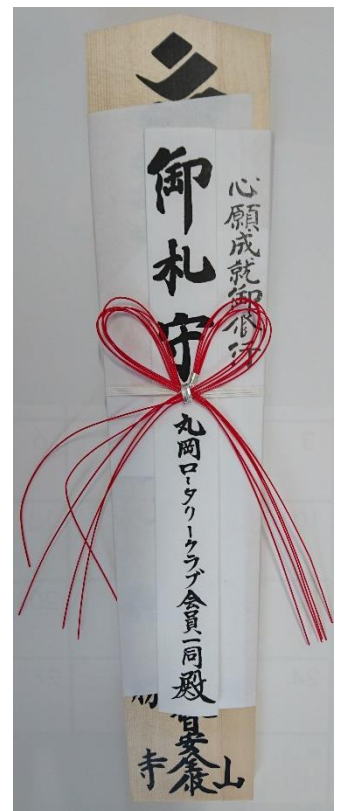 心願成就御修行
御札守
丸岡ロータリークラブ会員一同殿
山
寺